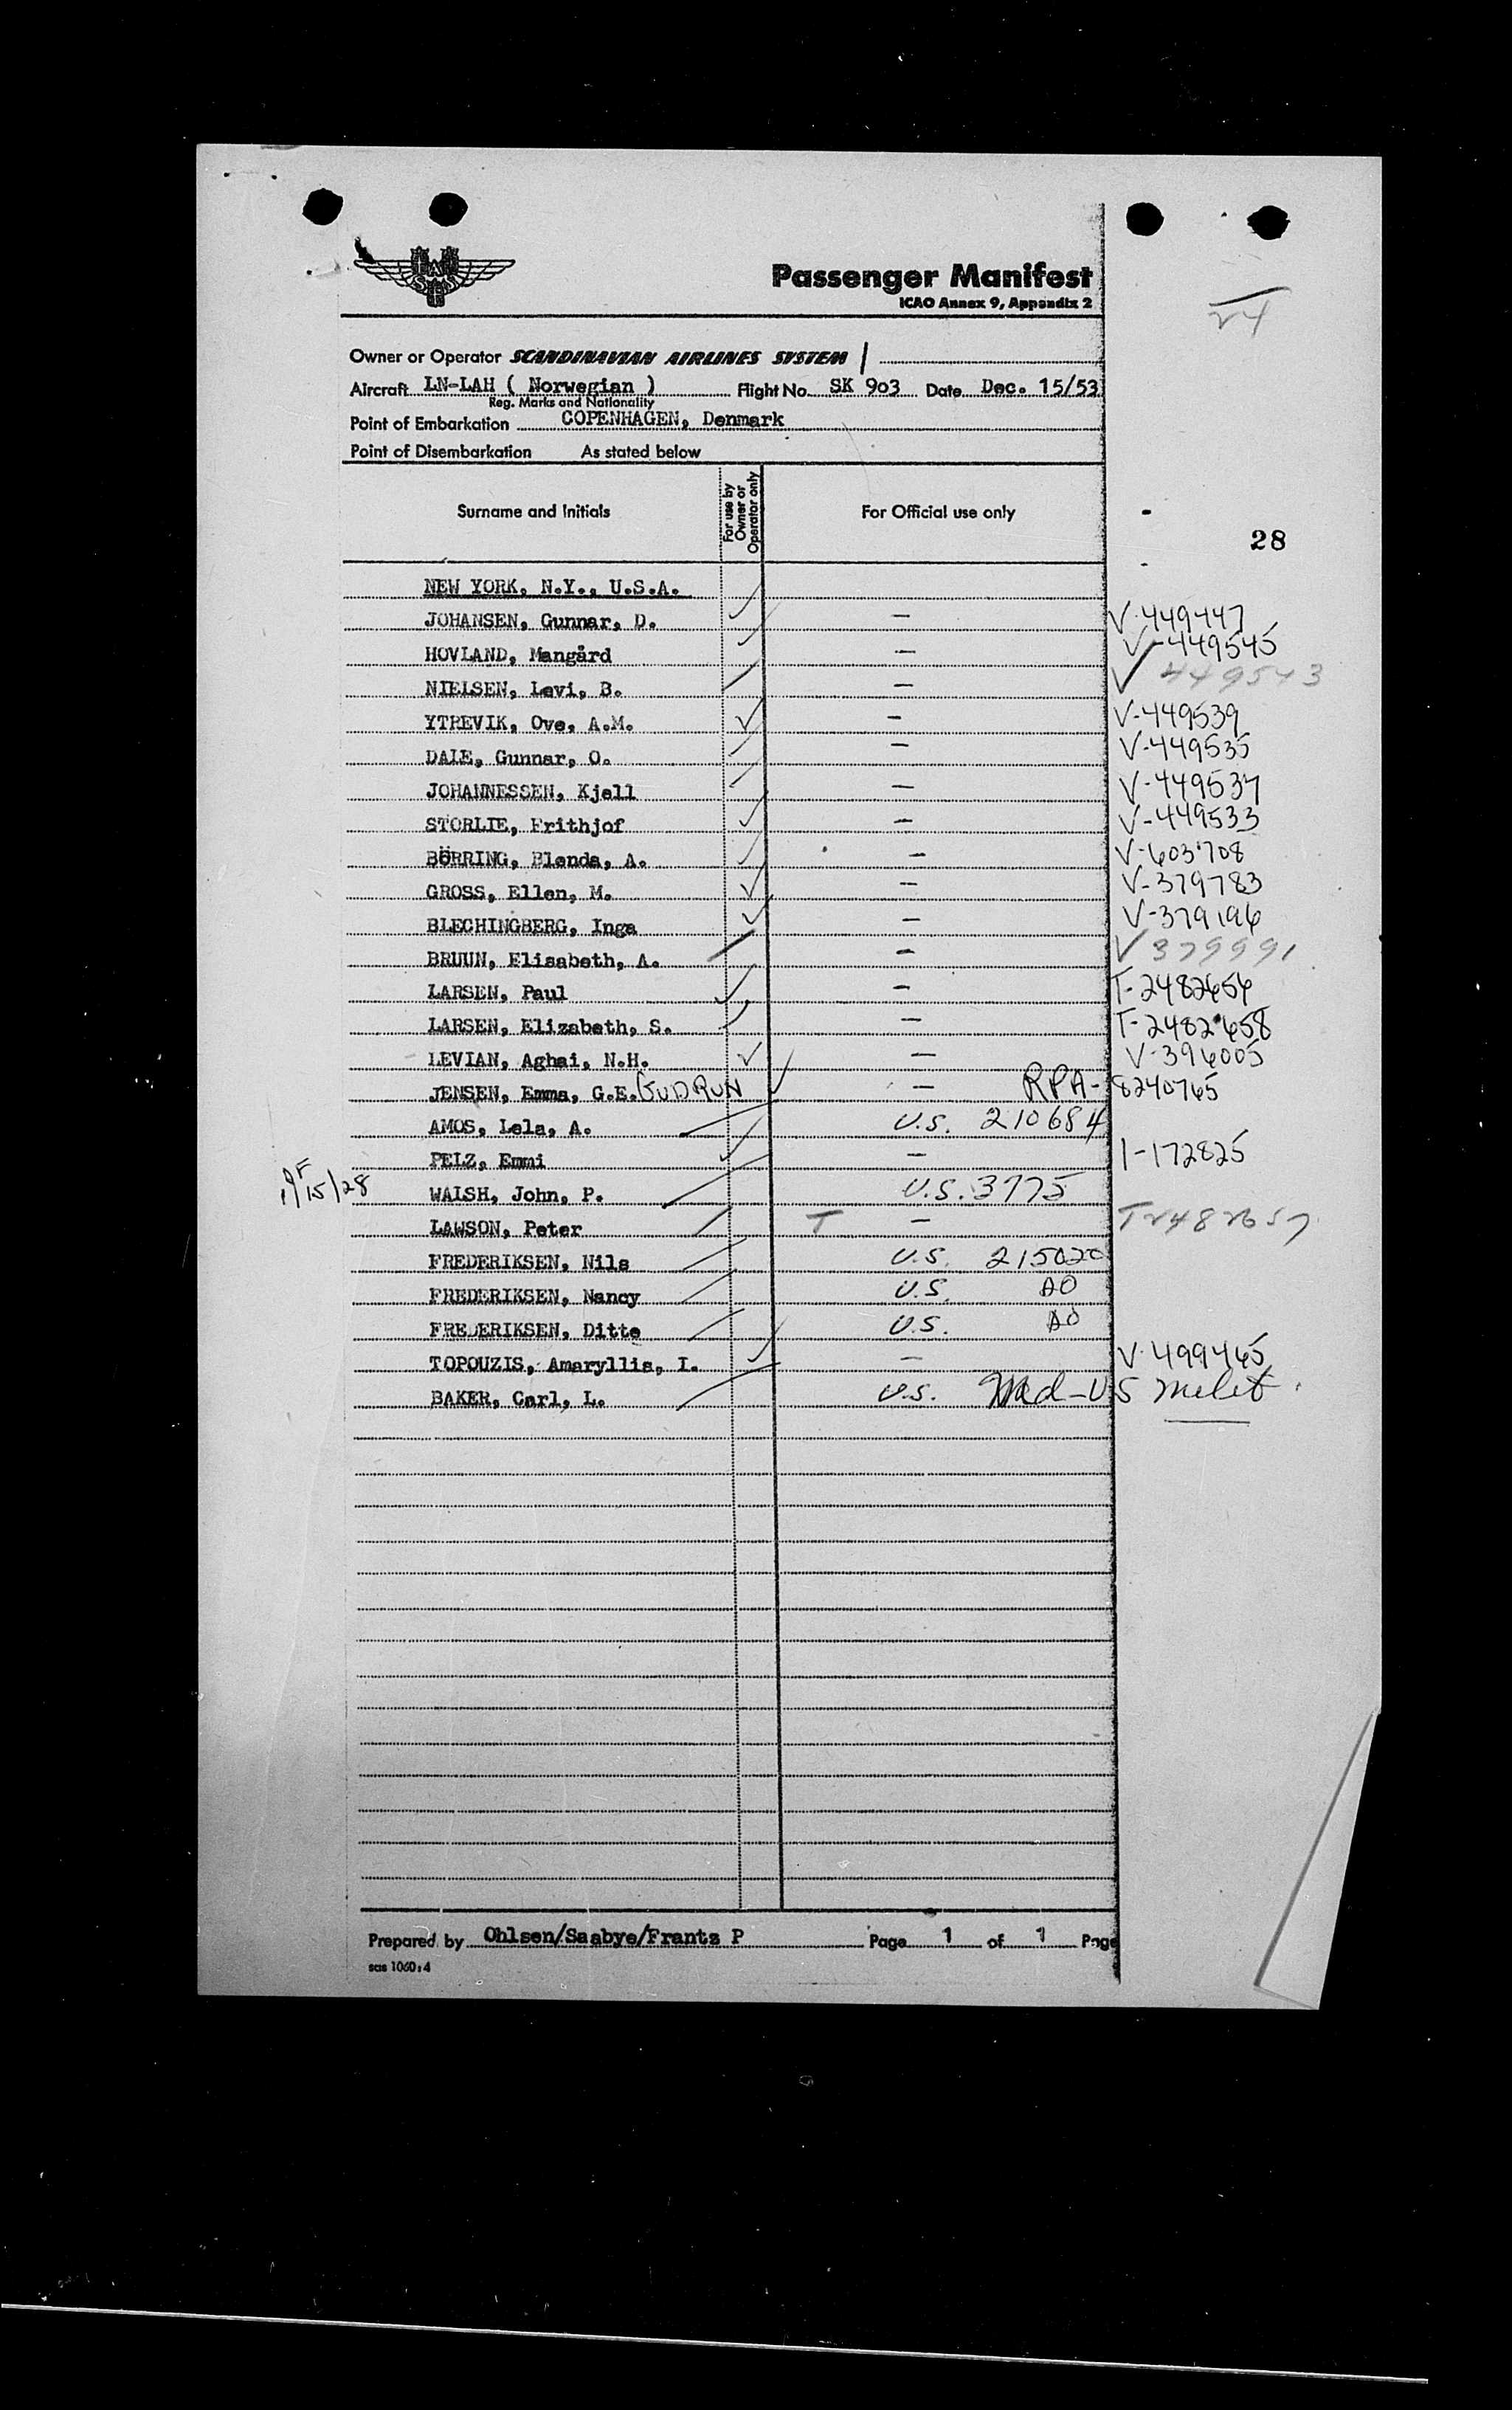 Passenger Manifest
ICAO Annex 9, Appendix 2
24
Owner or Operator SCANDINAVIAN AIRLINES SYSTEM
Aircraft LN-LAH ( Norwegian ) Flight No. SK 903 Date Dec. 15/53
Reg. Marks and Nationality
Point of Embarkation COPENHAGEN, Denmark
Point of Disembarkation As stated below
Surname and Initials For use by Owner or Operator only For Official use only
28
NEW YORK, N.Y., U.S.A.
JOHANSEN, Gunnar, D. — V-449447
HOVLAND, Mangård — V-449545
NIELSEN, Levi, B. — V 449543
YTREVIK, Ove, A.M. — V-449539
DALE, Gunnar, O. — V-449535
JOHANNESSEN, Kjell — V-449537
STORLIE, Frithjof — V-449533
BÖRRING, Blenda, A. — V-603708
GROSS, Ellen, M. — V-379783
BLECHINGBERG, Inga — V-379196
BRUUN, Elisabeth, A. — V 379991
LARSEN, Paul — T-2482656
LARSEN, Elizabeth, S. — T-2482658
LEVIAN, Aghai, N.H. — V-396005
JENSEN, Emma, G.E. GUDRUN — RPA-8240765
AMOS, Lela, A. U.S. 210684
PELZ, Emmi — I-172825
15/28 WALSH, John, P. U.S. 3775
LAWSON, Peter T — T2482657
FREDERIKSEN, Nils U.S. 215020
FREDERIKSEN, Nancy U.S. DO
FREDERIKSEN, Ditte U.S. DO
TOPOUZIS, Amaryllis, I. — V-499465
BAKER, Carl, L. U.S. Mcd-US Milit.
Prepared by Ohlsen/Saabye/Frantz P Page 1 of 1 Page
sas 1060:4